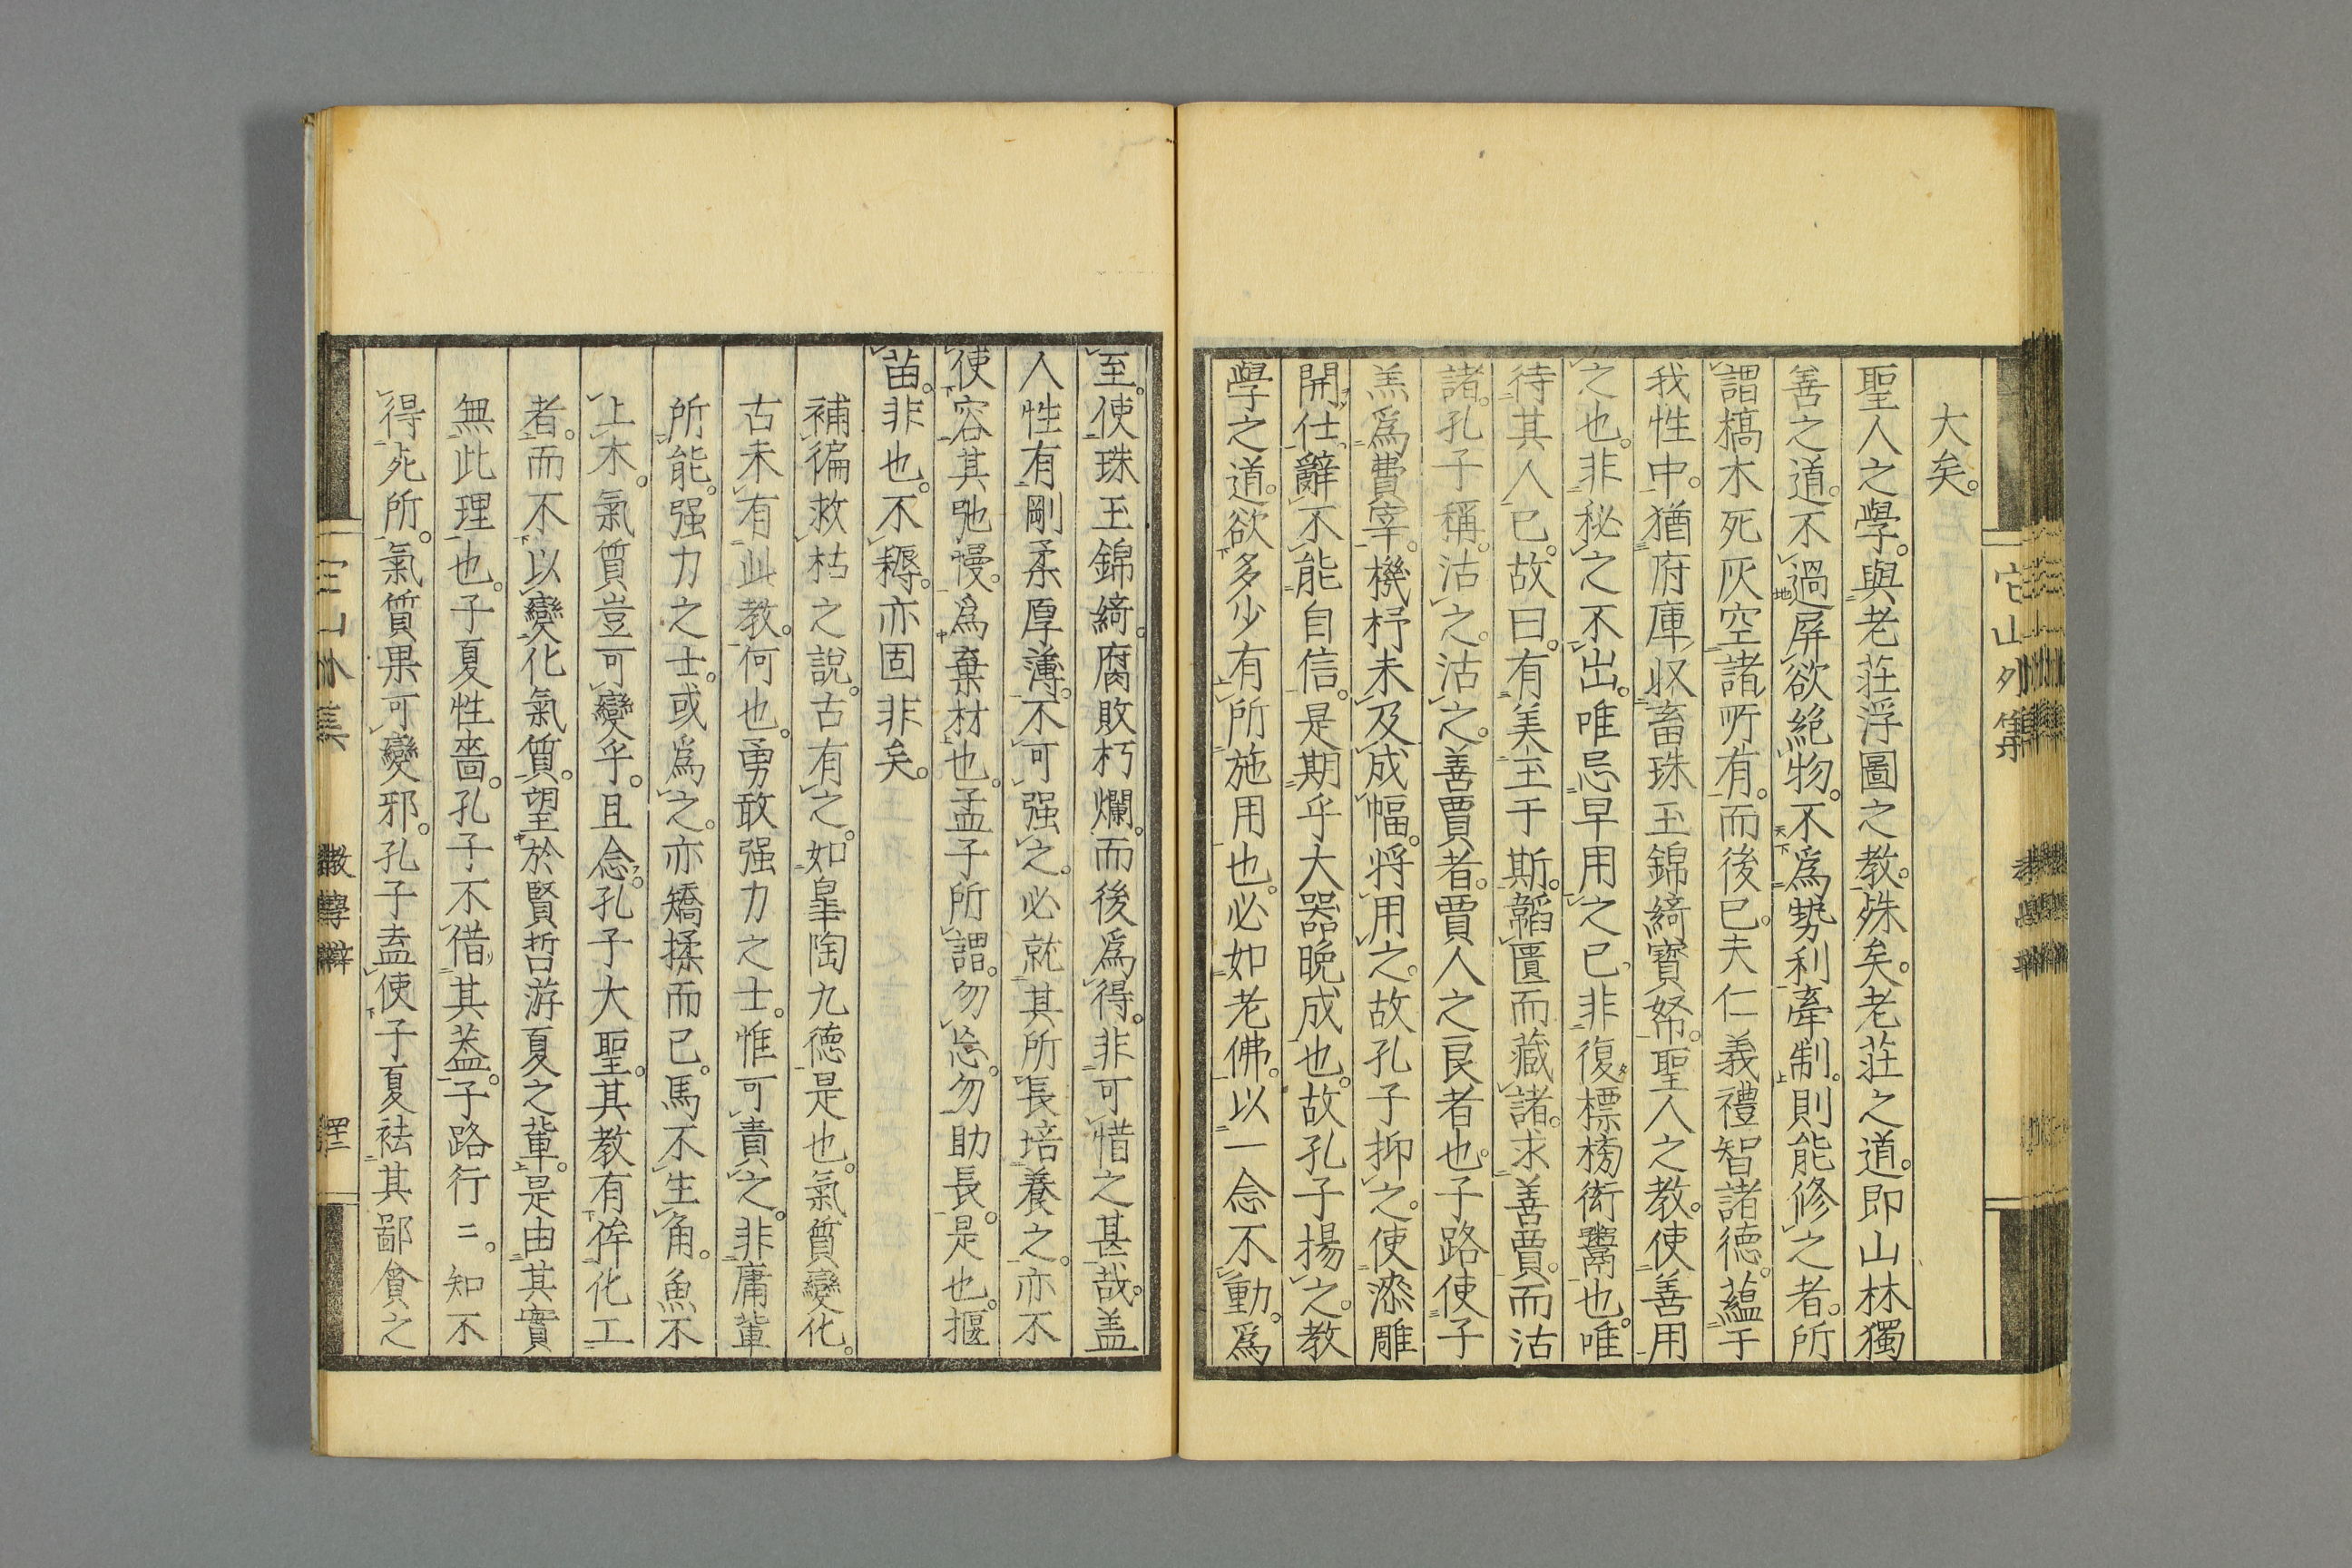 它山外集
大矣。
聖人之學。與老莊浮圖之教。殊矣。老莊之道。即山林獨
善之道。不過屏欲絶物。不爲勢利牽制。則能修之者。所
謂槁木死灰。空諸所有。而後已。夫仁義禮智諸德。蘊于
我性中。猶府庫收畜珠玉錦綺寳帑。聖人之教。使善用
之也。非秘之不出。唯忌早用之已。非復標榜衒鬻也。唯
待其人已。故曰。有美玉于斯。韞匱而藏諸。求善賈。而沽
諸。孔子稱。沽之。沽之。善賈者。賈人之良者也。子路使子
羔爲費宰。機杼未及成幅。将用之。故孔子抑之。使漆雕
開仕。辭不能自信。是期乎大器晩成也。故孔子揚之。教
學之道。欲多少有所施用也。必如老佛。以一念不動。爲
至。使珠玉錦綺。腐敗朽爛。而後爲得。非可惜之甚哉。盖
人性有剛柔厚薄。不可强之。必就其所長培養之。亦不
使容其弛慢。爲棄材也。孟子所謂。勿忘。勿助長。是也。揠
苗。非也。不耨。亦固非矣。
補徧救枯之說。古有之。如皐陶九德是也。氣質變化。
古未有此教。何也。勇敢强力之士。惟可責之。非庸輩
所能。强力之士。或爲之。亦矯揉而已。馬不生角。魚不
上木。氣質豈可變乎。且念。孔子大聖。其教有侔化工
者。而不以變化氣質。望於賢哲游夏之輩。是由其實
無此理也。子夏性嗇。孔子不借其蓋。子路行〻。知不
得死所。氣質果可變邪。孔子盍使子夏袪其鄙貪之
教學辯